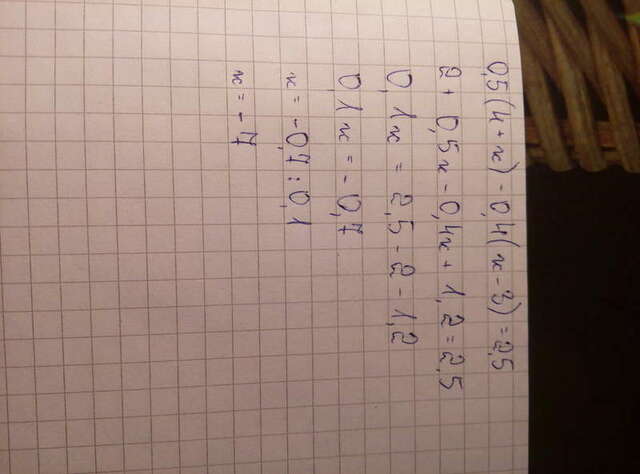 0,5(4+x)-0,4(x-3)=2,5
2+0,5x-0,4x+1,2=2,5
0,1x=2,5-2-1,2
0,1x=-0,7
x=-0,7:0,1
x=-7